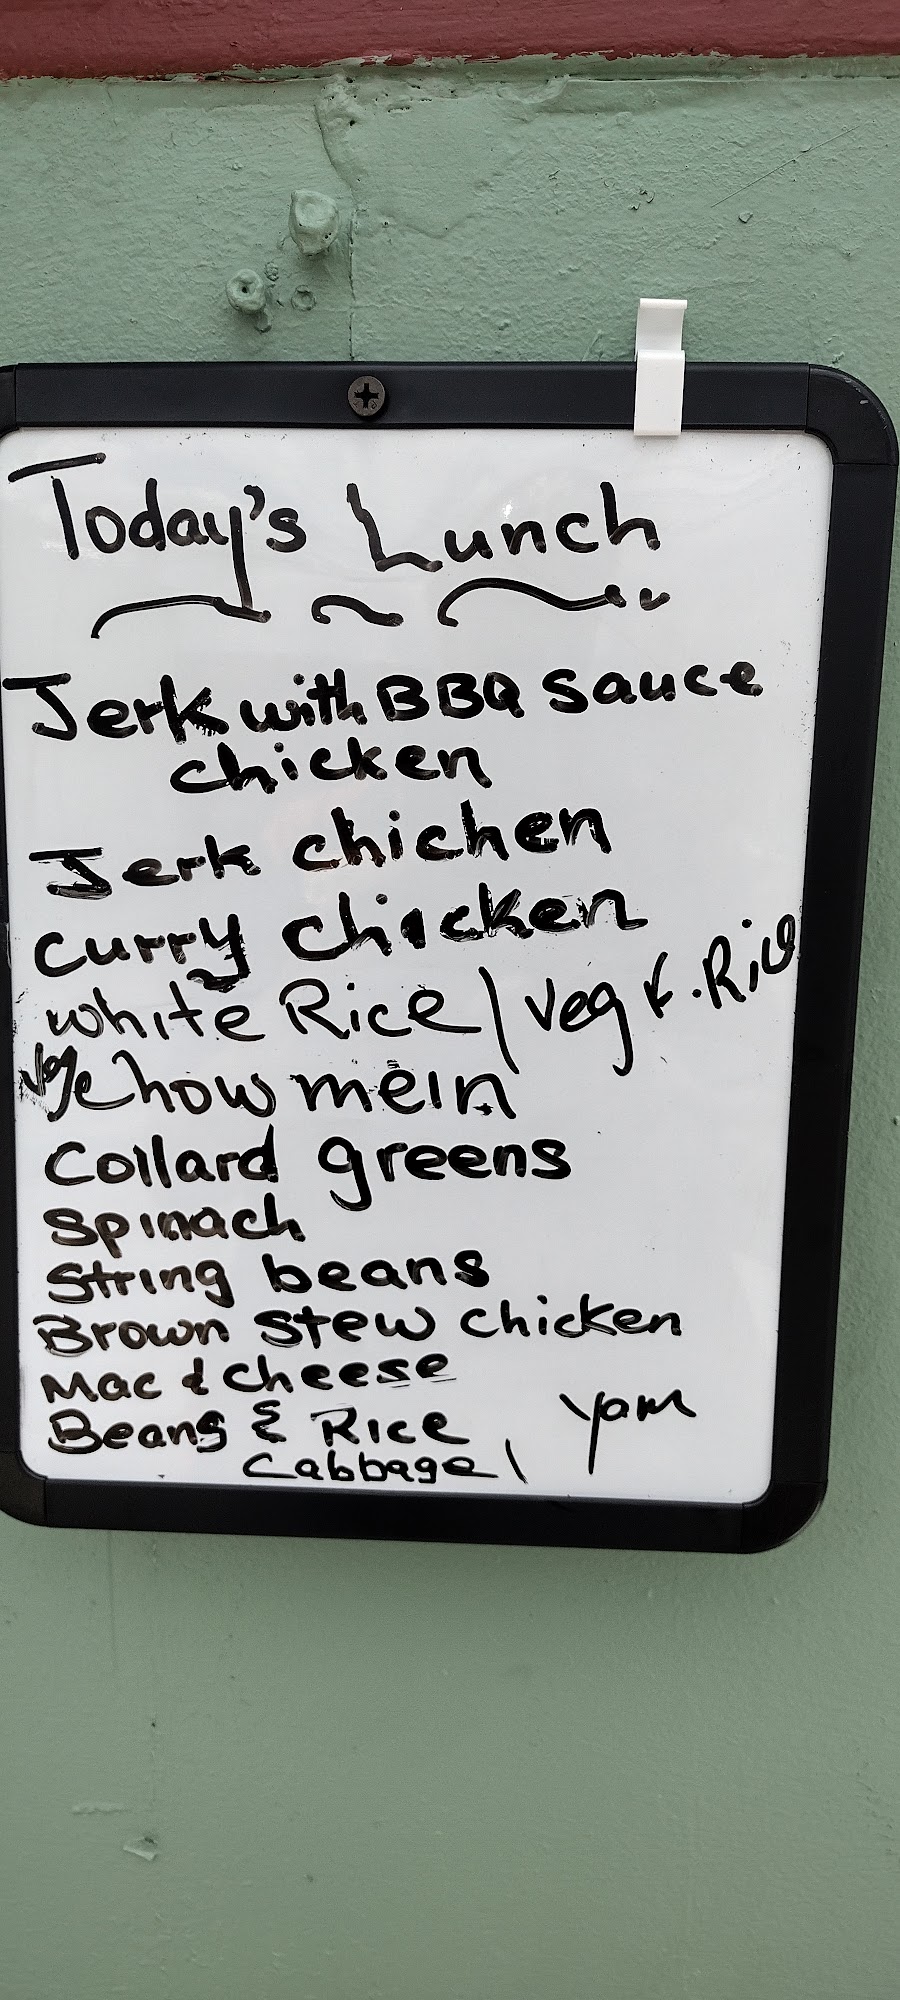 Today's Lunch
Jerk with BBQ Sauce
chicken
Jerk chichen
Curry chicken
White Rice / Veg f. Rice
Vege chow mein
Collard greens
Spinach
String beans
Brown stew chicken
Mac & cheese
Beans & Rice
Cabbage / Yam